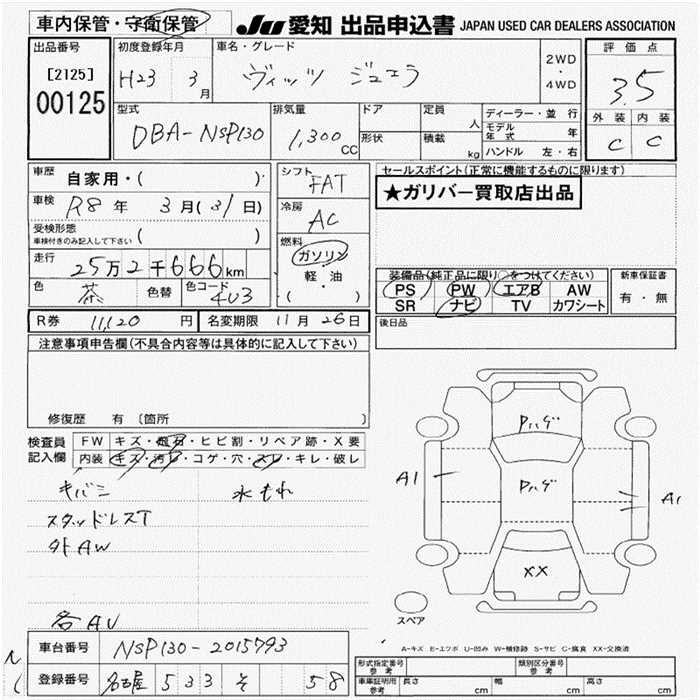 車内保管・守衛保管
JU 愛知 出品申込書 JAPAN USED CAR DEALERS ASSOCIATION
出品番号
[2125]
00125
初度登録年月
H23 3月
車名・グレード
ヴィッツ ジュエラ
2WD
・
4WD
評価点
3.5
外装 内装
C C
型式
DBA-NSP130
排気量
1,300cc
ドア
形状
定員
人
積載
kg
ディーラー・並行
モデル年式 年
ハンドル 左・右
車歴
自家用・( )
車検
R8年 3月(31日)
受検形態
車検付きのみ記入して下さい ( )
走行
25万2千666km
色
茶
色替
色コード
4U3
シフト
FAT
冷房
AC
燃料
ガソリン
・
軽・油
・
( )
セールスポイント(正常に機能するものに限ります)
★ガリバー買取店出品
装備品(純正品に限り○をつけてください)
PS PW エアB AW
SR ナビ TV カワシート
新車保証書
有・無
後日品
R券 11,120円
名変期限 11月26日
注意事項申告欄(不具合内容等は具体的に記入して下さい)
修復歴 有〔箇所 〕
検査員記入欄
FW キズ・飛石・ヒビ割・リペア跡・X要
内装 キズ・汚レ・コゲ・穴・スレ・キレ・破レ
キバミ 水もれ
スタッドレスT
外AW
各AU
Pハゲ
Pハゲ
A1
A1
XX
スペア
A-キズ E-エクボ U-凹み W-補修跡 S-サビ C-腐食 XX-交換済
車台番号 NSP130-2015793
登録番号 名古屋 533 そ 58
形式指定番号
参考
類別区分番号
参考
車庫証明用
参考
長さ cm
幅 cm
高さ cm